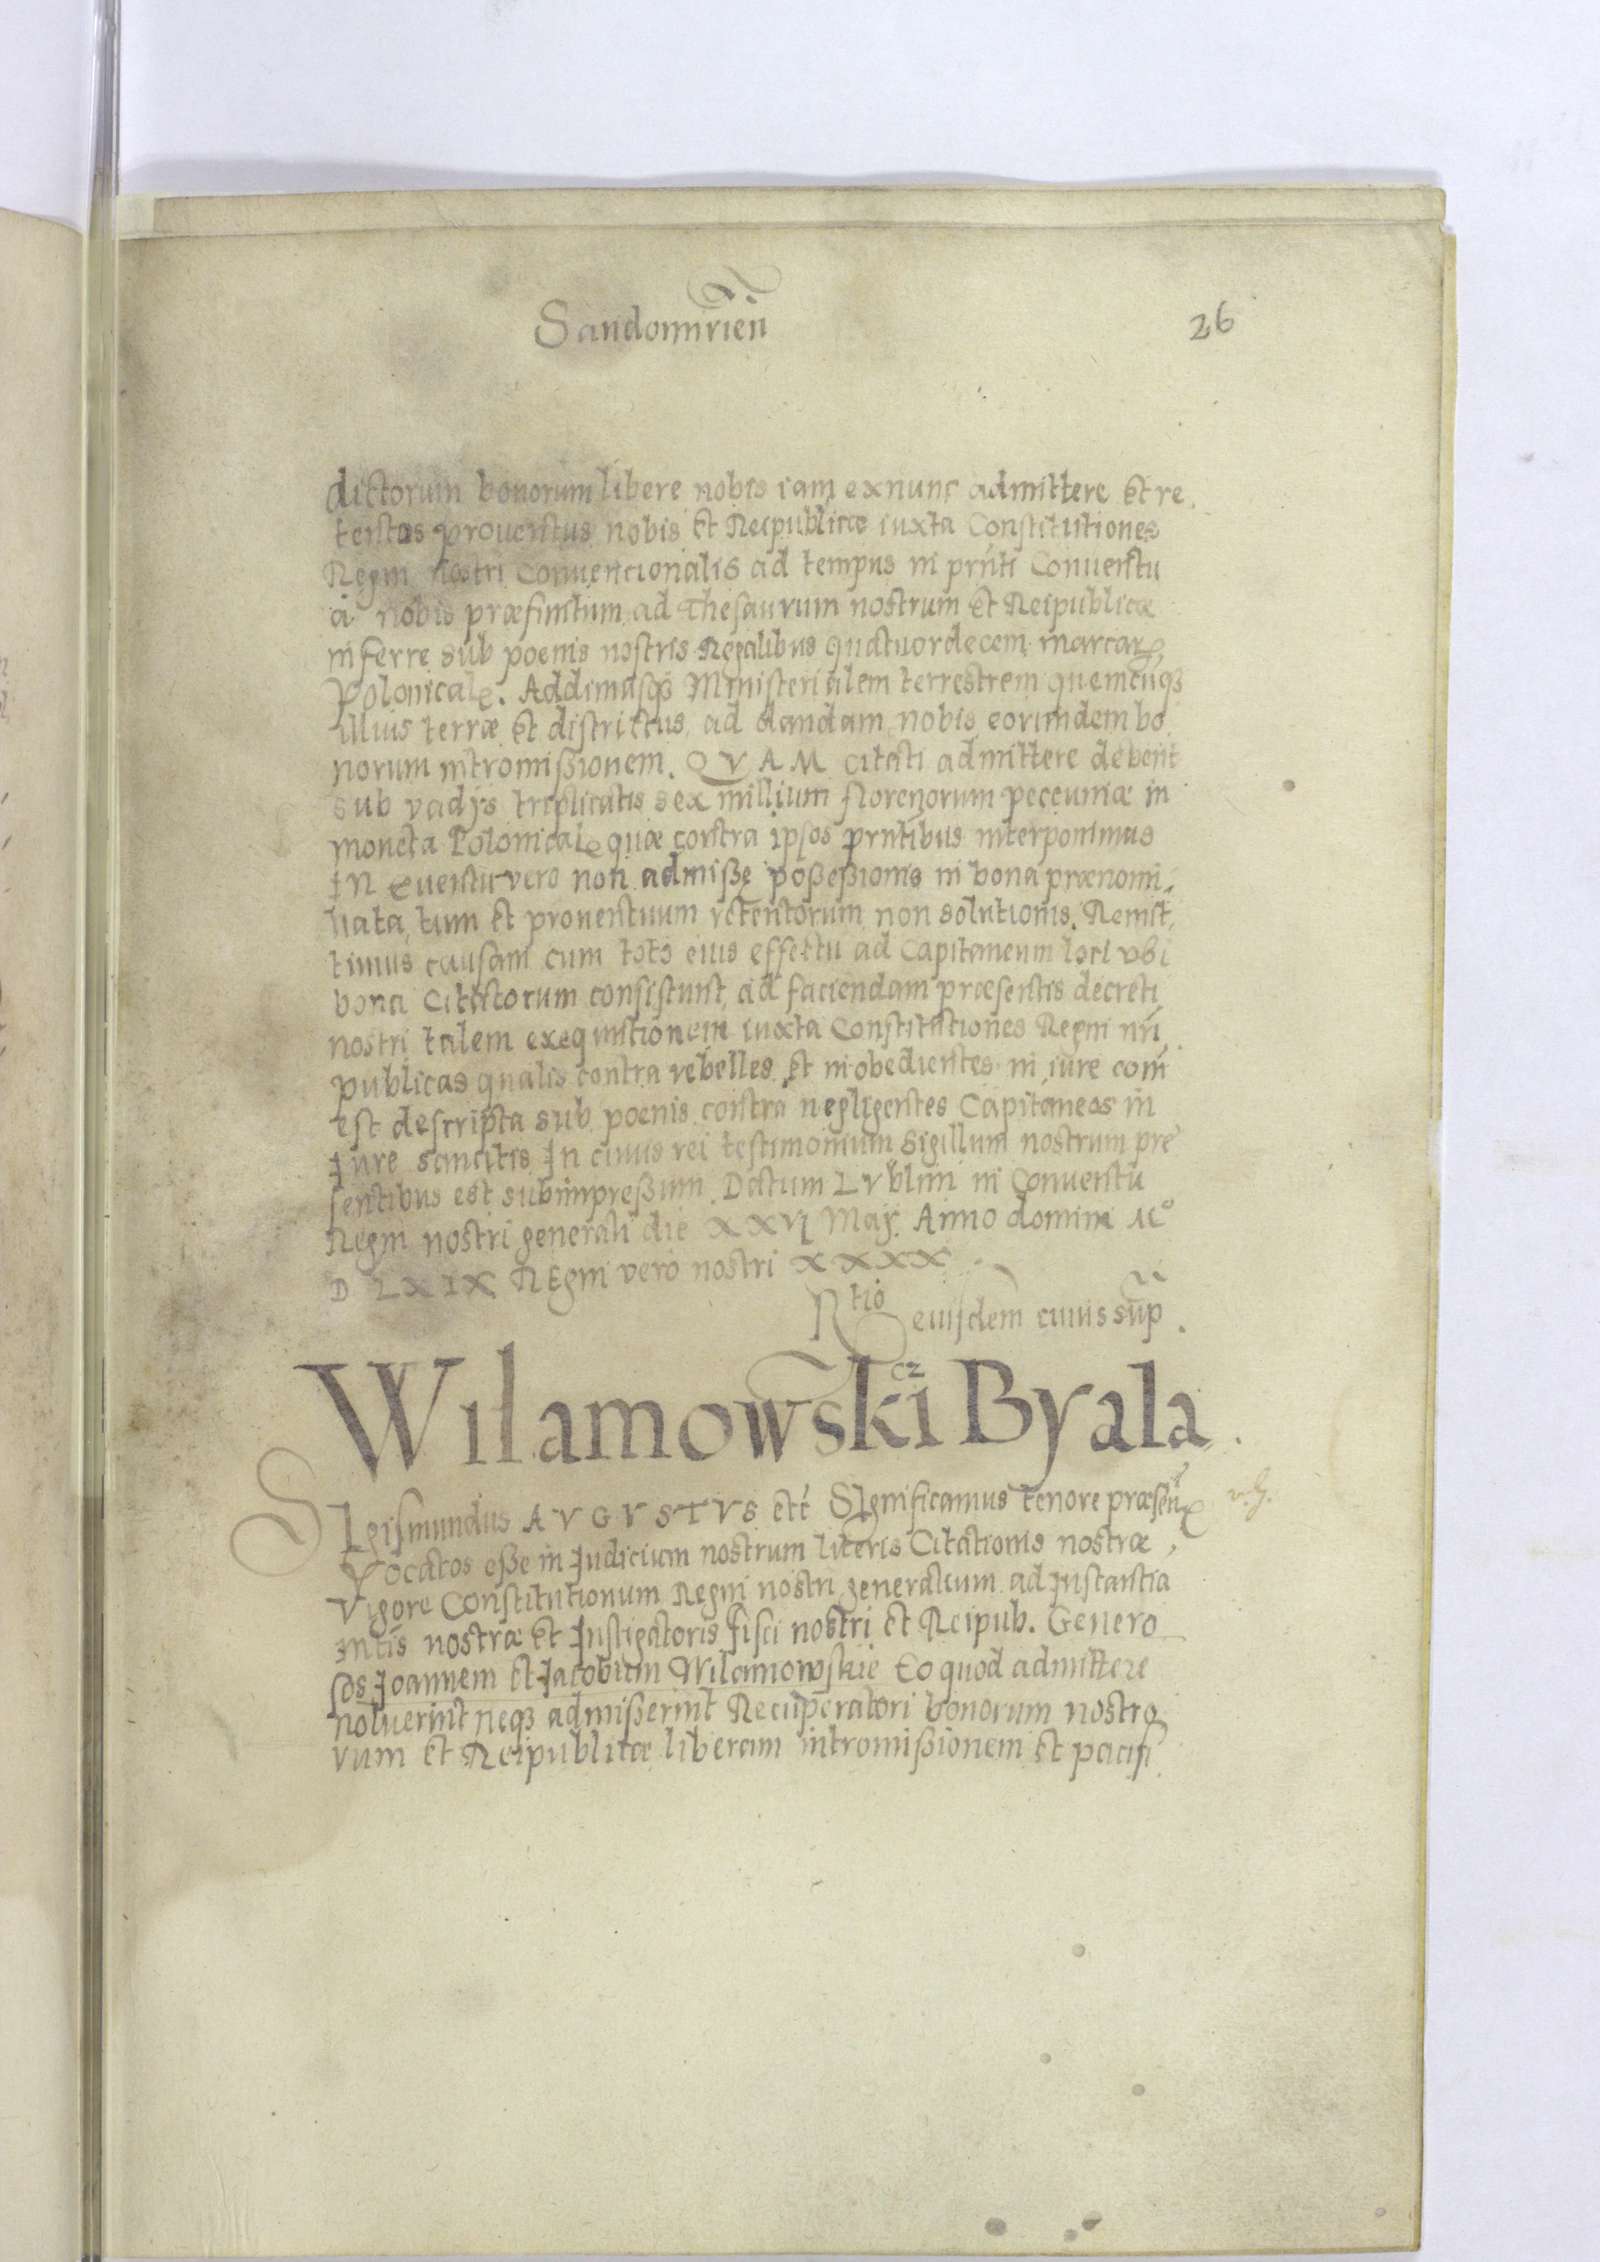 Sandomirien̄
26
dictorum bonorum libere nobis iam exnunc admittere Et re
tentos prouentus nobis Et Reipublicæ iuxta Constitutiones
Regni nostri Conuencionalis ad tempus in prn̄ti Conuentu
à nobis præfinitum ad Thesaurum nostrum Et Reipublicæ
inferre sub poenis nostris Regalibus quatuordecem marcarꝝ
Polonicalꝭ. Addimusqꝫ Ministerialem terrestrem quemcuqꝫ
illius terræ Et districtus ad dandam nobis eorundem bo
norum intromißionem. QVAM citati admittere debent
sub vadijs triplicatis sex millium florenorum peceuniæ in
moneta Polonicalꝭ quæ contra ipsos prn̄tibus interponimus
IN euentu vero non admißę poßeßionis in bona prænomi
nata, tum Et prouentuum retentorum non solutionis. Remit
timus causam cum toto eius effectu ad Capitaneum loci vbi
bona Citatorum consistunt, ad faciendam præsentis decreti
nostri talem exequutionem iuxta Constitutiones Regni nr̄i
publicas qualis contra rebelles Et inobedientes in iure com̄
est descripta sub poenis contra negligentes Capitaneos in
Jure sancitis In cuius rei testimonium Sigillum nostrum pre
sentibus est subimpreßum. Datum LVblini in Conuentu
Regni nostri generali die XXVI Maij. Anno domini Mº
D LXIX REgni vero nostri XXXX
Rtio eiusdem cuius sup̄.
cz
Wilamowski Byala.
SIgismundus AVGVSTVS etć SIgnificamus tenore præsen̄ꝝ
Vocatos eße in Judicium nostrum literis Citationis nostræ,
Vigore Constitutionum Regni nostri generalium ad Instantia
Mtis nostræ Et Instigatoris fisci nostri Et Reipub. Genero
sos Joannem Et Jacobum Wilamowskie Eo quod admittere
noluerint neqꝫ admißerint Recuperatori bonorum nostro
rum Et Reipublicæ liberam intromißionem Et pacifi